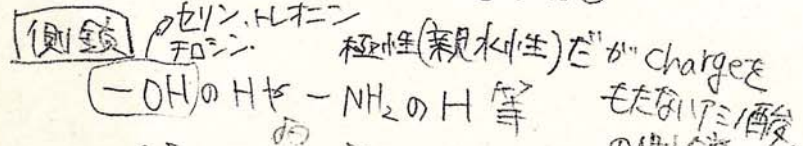 側鎖 セリン、トレオニン
チロシン. 極性(親水性)だが chargeを
-OHのHや -NH₂のH 等 もたないアミノ酸
の側鎖